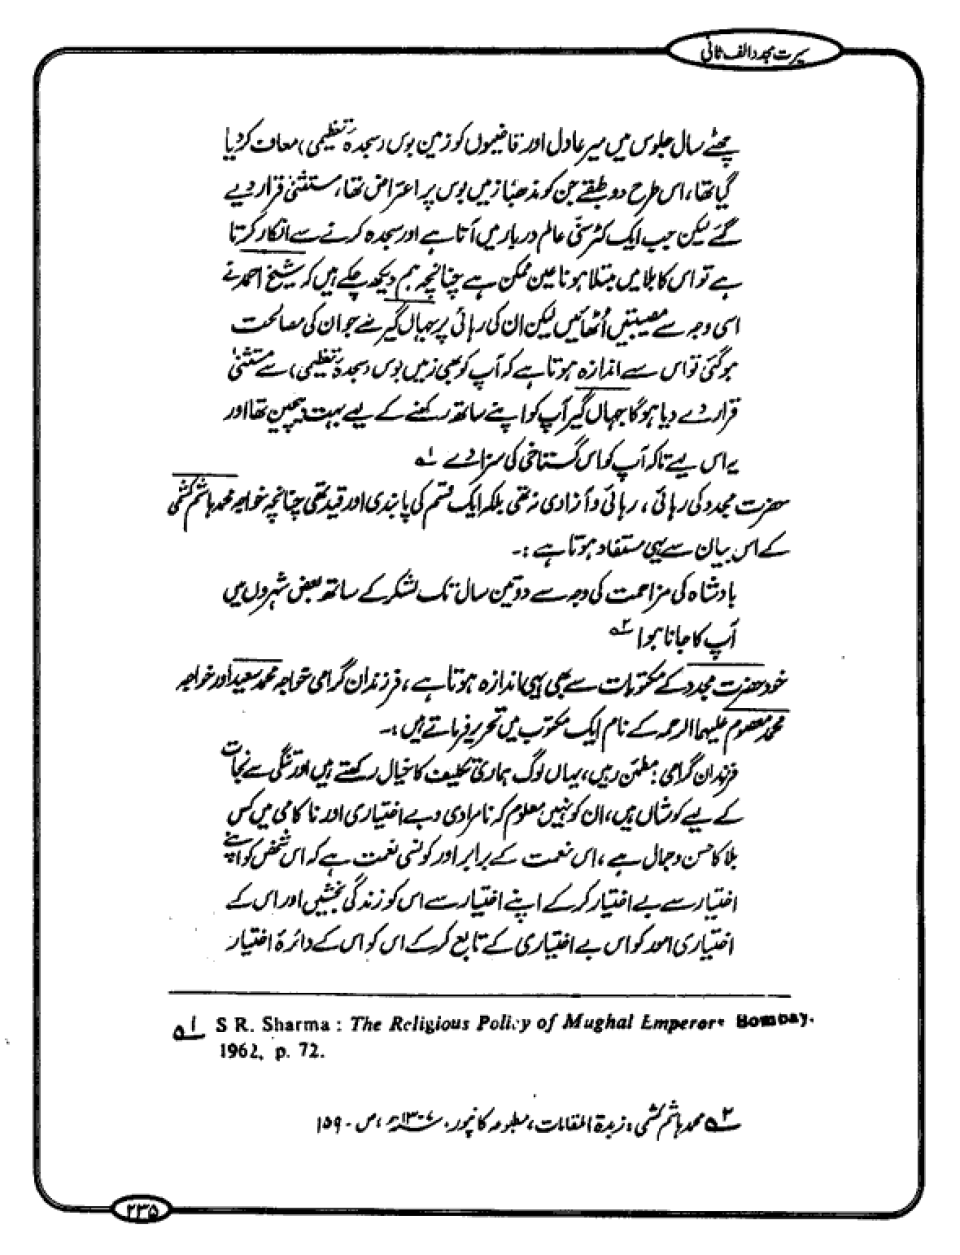 سیرت مجدد الف ثانی
چھٹے سال جلوس میں میر عادل اور قاضیوں کو زمین بوس (سجدۂ تعظیمی) معاف کر دیا
گیا تھا، اس طرح دو طبقے جن کو مذھباً زمیں بوس پر اعتراض تھا، مستثنیٰ قرار دیے
گئے لیکن جب ایک کٹر سنّی عالم دربار میں آتا ہے اور سجدہ کرنے سے انکار کرتا
ہے تو اس کا بلا میں مبتلا ہونا عین ممکن ہے چنانچہ ہم دیکھ چکے ہیں کہ شیخ احمد نے
اسی وجہ سے مصیبتیں اُٹھائیں لیکن ان کی رہائی پر جہاں گیر نے جو ان کی مصالحت
ہو گئی تو اس سے اندازہ ہوتا ہے کہ آپ کو بھی زمیں بوس (سجدۂ تعظیمی) سے مستثنیٰ
قرار دے دیا ہو گا جہاں گیر آپ کو اپنے ساتھ رکھنے کے لیے بہت بےچین تھا اور
یہ اس لیے تاکہ آپ کو اس گستاخی کی سزا دے ۱؎
حضرت مجدد کی رہائی، رہائی و آزادی نہ تھی بلکہ ایک قسم کی پابندی اور قید تھی چنانچہ خواجہ محمد ہاشم کشمی
کے اس بیان سے یہی مستفاد ہوتا ہے :۔
بادشاہ کی مزاحمت کی وجہ سے دو تین سال تک لشکر کے ساتھ بعض شہروں میں
آپ کا جانا ہوا ۲؎
خود حضرت مجدد کے مکتوبات سے بھی یہی اندازہ ہوتا ہے، فرزندان گرامی خواجہ محمد سعید اور خواجہ
محمد معصوم علیہما الرحمہ کے نام ایک مکتوب میں تحریر فرماتے ہیں :۔
فرزندان گرامی! مطمئن رہیں، یہاں لوگ ہماری تکلیف کا خیال رکھتے ہیں اور تنگی سے نجات
کے لیے کوشاں ہیں، ان کو نہیں معلوم کہ نامرادی و بے اختیاری اور ناکامی میں کس
بلا کا حسن و جمال ہے، اس نعمت کے برابر اور کونسی نعمت ہے کہ اس شخص کو اپنے
اختیار سے بے اختیار کر کے اپنے اختیار سے اس کو زندگی بخشیں اور اس کے
اختیاری امور کو اس بے اختیاری کے تابع کر کے اس کو اس کے دائرۂ اختیار
۱؎ S R. Sharma : The Religious Policy of Mughal Emperors Bombay.
1962, p. 72.
۲؎ محمد ہاشم کشمی: زبدۃ المقامات، مطبوعہ کانپور، ۱۳۰۷ھ، ص۔ ۱۵۹
۲۳۵